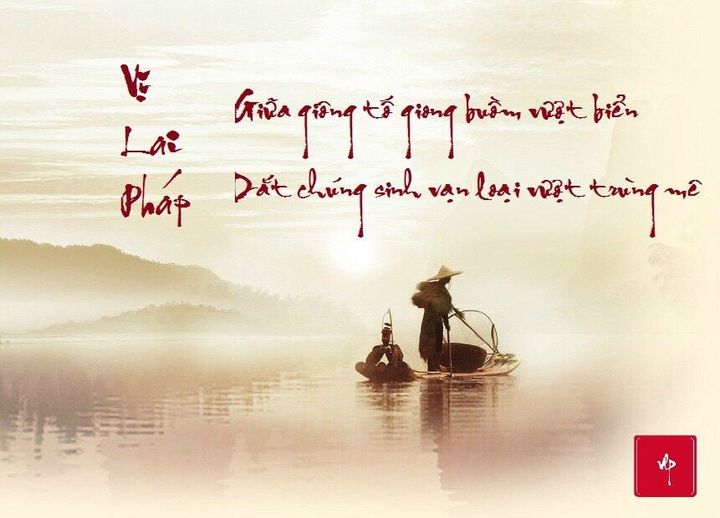 Vị
Lai
Pháp
Giữa giông tố giong buồm vượt biển
Dắt chúng sinh vạn loại vượt trùng mê
vlp